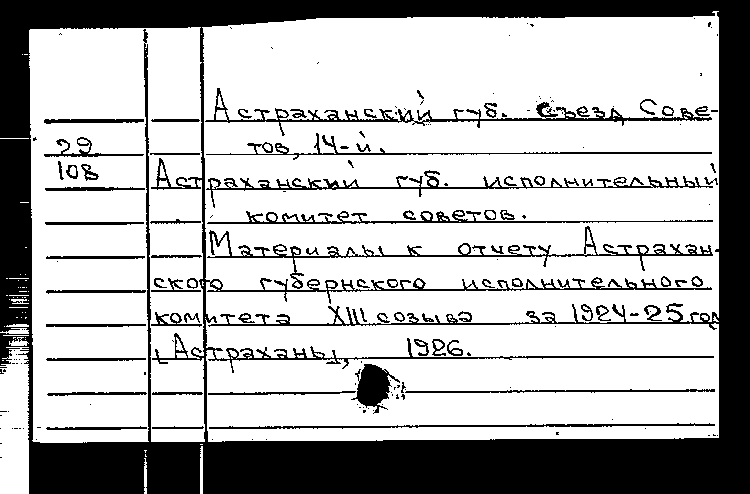 Астраханский губ. съезд Сове-
29 тов, 14-й.
108 Астраханский губ. исполнительный
комитет советов.
Материалы к отчету Астрахан-
ского губернского исполнительного
комитета XIII созыва за 1924-25 год
[Астрахань], 1926.